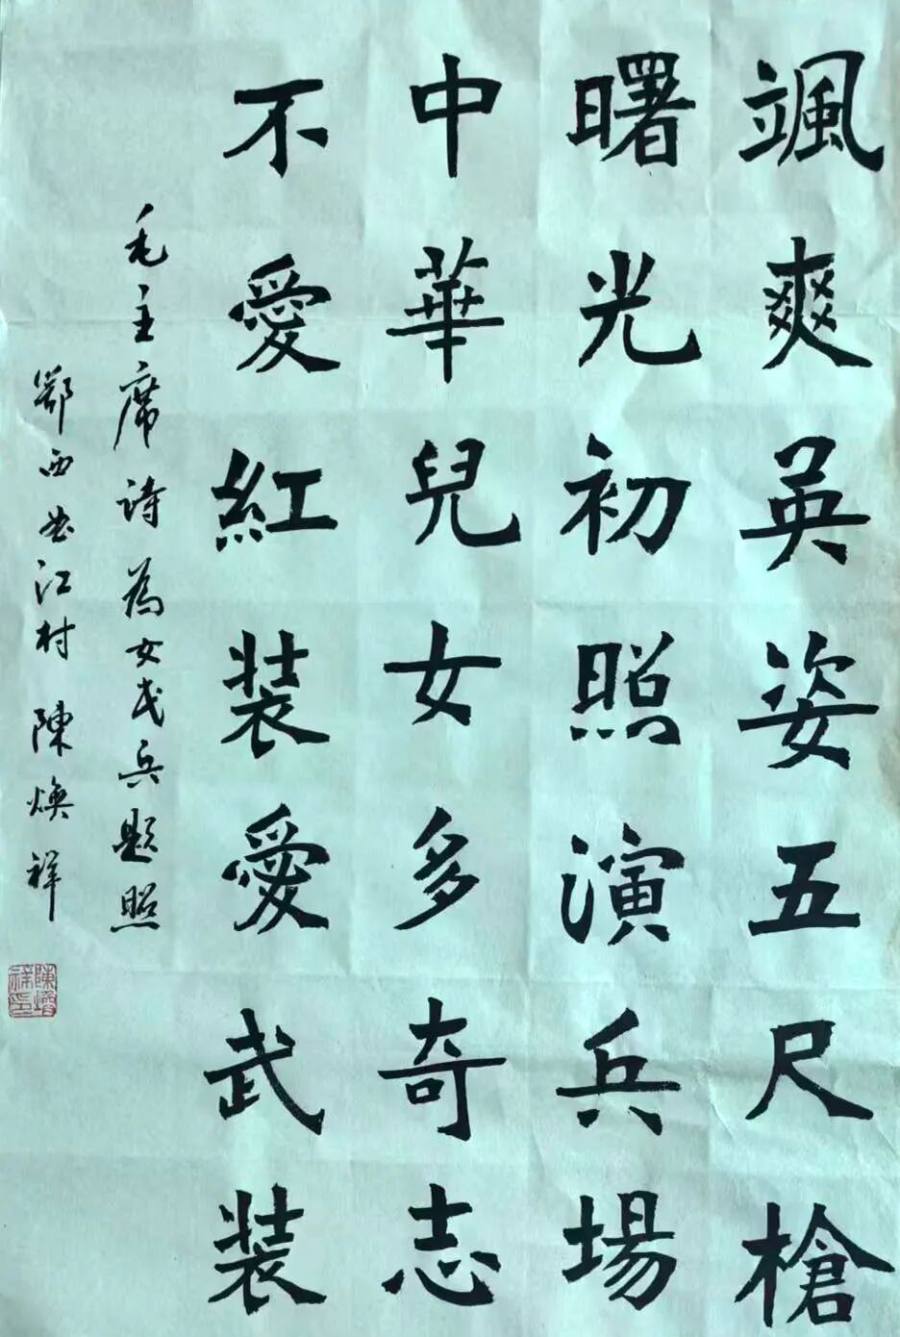 颯爽英姿五尺槍
曙光初照演兵場
中華兒女多奇志
不愛紅裝愛武裝
毛主席诗為女民兵題照
鄂西 江村 陳煥祥